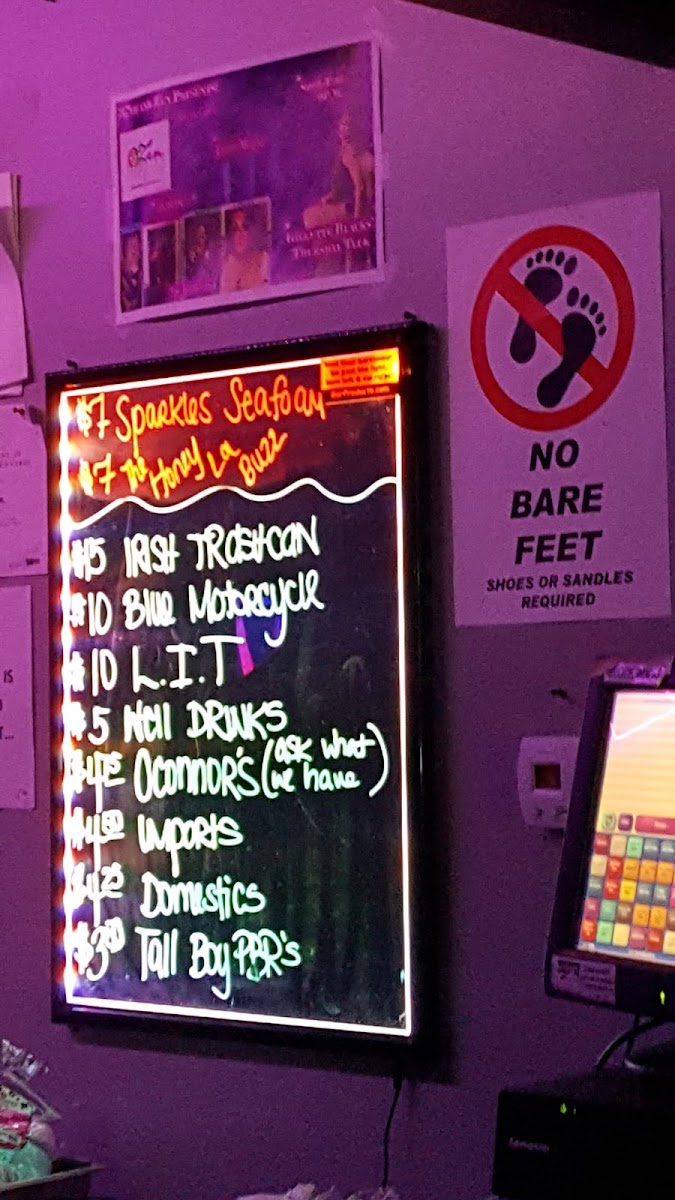 $7 Sparkles Seafoam
$7 The Honey La Buzz
$15 IRISH TRASHCAN
$10 Blue Motorcycle
$10 L.I.T
$5 Well DRINKS
$4.75 OCONNOR'S (ask what we have)
$4.50 Imports
$4.25 Domestics
$3.50 Tall Boy PBR's
NO
BARE
FEET
SHOES OR SANDLES
REQUIRED
lenovo